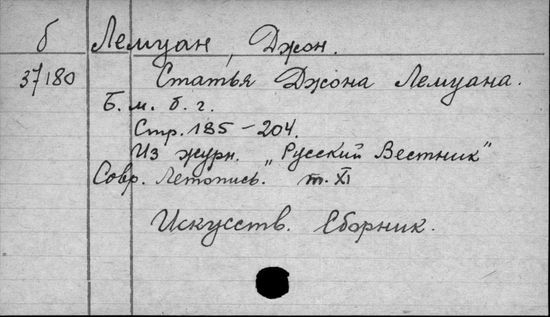 б Лемуан, Джон.
37180 Статья Джона Лемуана.
Б. м. б. г.
Стр. 185-204.
Из журн. „Русский Вестник"
Совр. Летопись. т. XI
Искусств. Сборник.